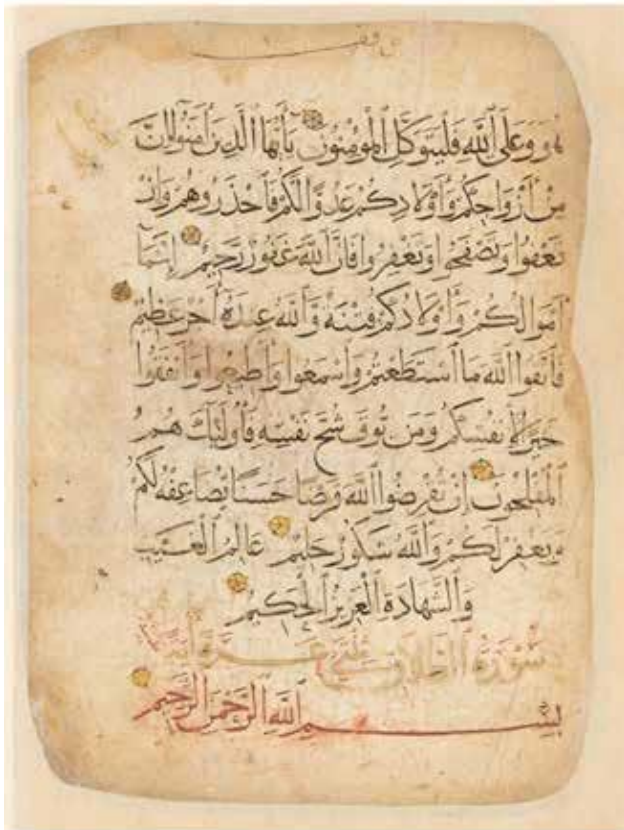 وقف
هو وعلى الله فليتوكل المؤمنون يٰأيها الذين اٰمنوا ان
من أزواجكم وأولادكم عدوا لكم فاحذروهم وان
تعفوا وتصفحوا وتغفروا فان الله غفور رحيم انمآ
أموالكم وأولادكم فتنة والله عنده أجر عظيم
فاتقوا الله ما استطعتم واسمعوا وأطيعوا وانفقوا
خيرا لأنفسكم ومن يوق شح نفسه فأولئك هم
المفلحون ان تقرضوا الله قرضا حسنا يضاعفه لكم
ويغفر لكم والله شكور حليم عالم الغيب
والشهادة العزيز الحكيم
سورة الطلاق عشرة آية
بسم الله الرحمن الرحيم